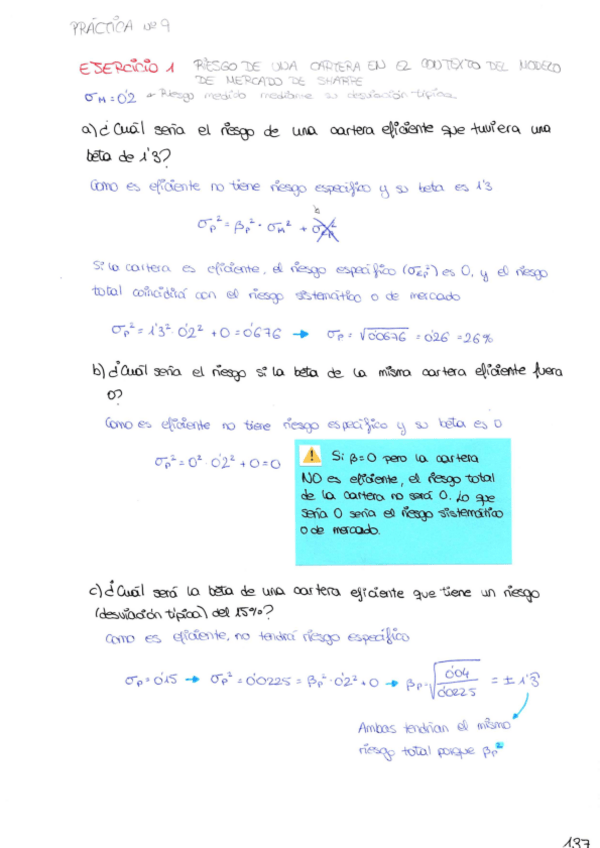 PRÁCTICA Nº 9
EJERCICIO 1 RIESGO DE UNA CARTERA EN EL CONTEXTO DEL MODELO
DE MERCADO DE SHARPE
σM = 0'2 → Riesgo medido mediante su desviación típica
a) ¿Cuál sería el riesgo de una cartera eficiente que tuviera una
beta de 1'3?
Como es eficiente no tiene riesgo específico y su beta es 1'3
σp² = βp² · σM² + σεp²
Si la cartera es eficiente, el riesgo específico (σεp²) es 0, y el riesgo
total coincidirá con el riesgo sistemático o de mercado
σp² = 1'3² · 0'2² + 0 = 0'0676 → σp = √0'0676 = 0'26 = 26%
b) ¿Cuál sería el riesgo si la beta de la misma cartera eficiente fuera
0?
Como es eficiente no tiene riesgo específico y su beta es 0
σp² = 0² · 0'2² + 0 = 0
Si β=0 pero la cartera
NO es eficiente, el riesgo total
de la cartera no será 0. Lo que
sería 0 sería el riesgo sistemático
o de mercado.
c) ¿Cuál será la beta de una cartera eficiente que tiene un riesgo
(desviación típica) del 15%?
Como es eficiente, no tendrá riesgo específico
σp = 0'15 → σp² = 0'0225 = βp² · 0'2² + 0 → βp = √0'04/0'0225 = ± 1'3
Ambas tendrían el mismo
riesgo total porque βp²
137